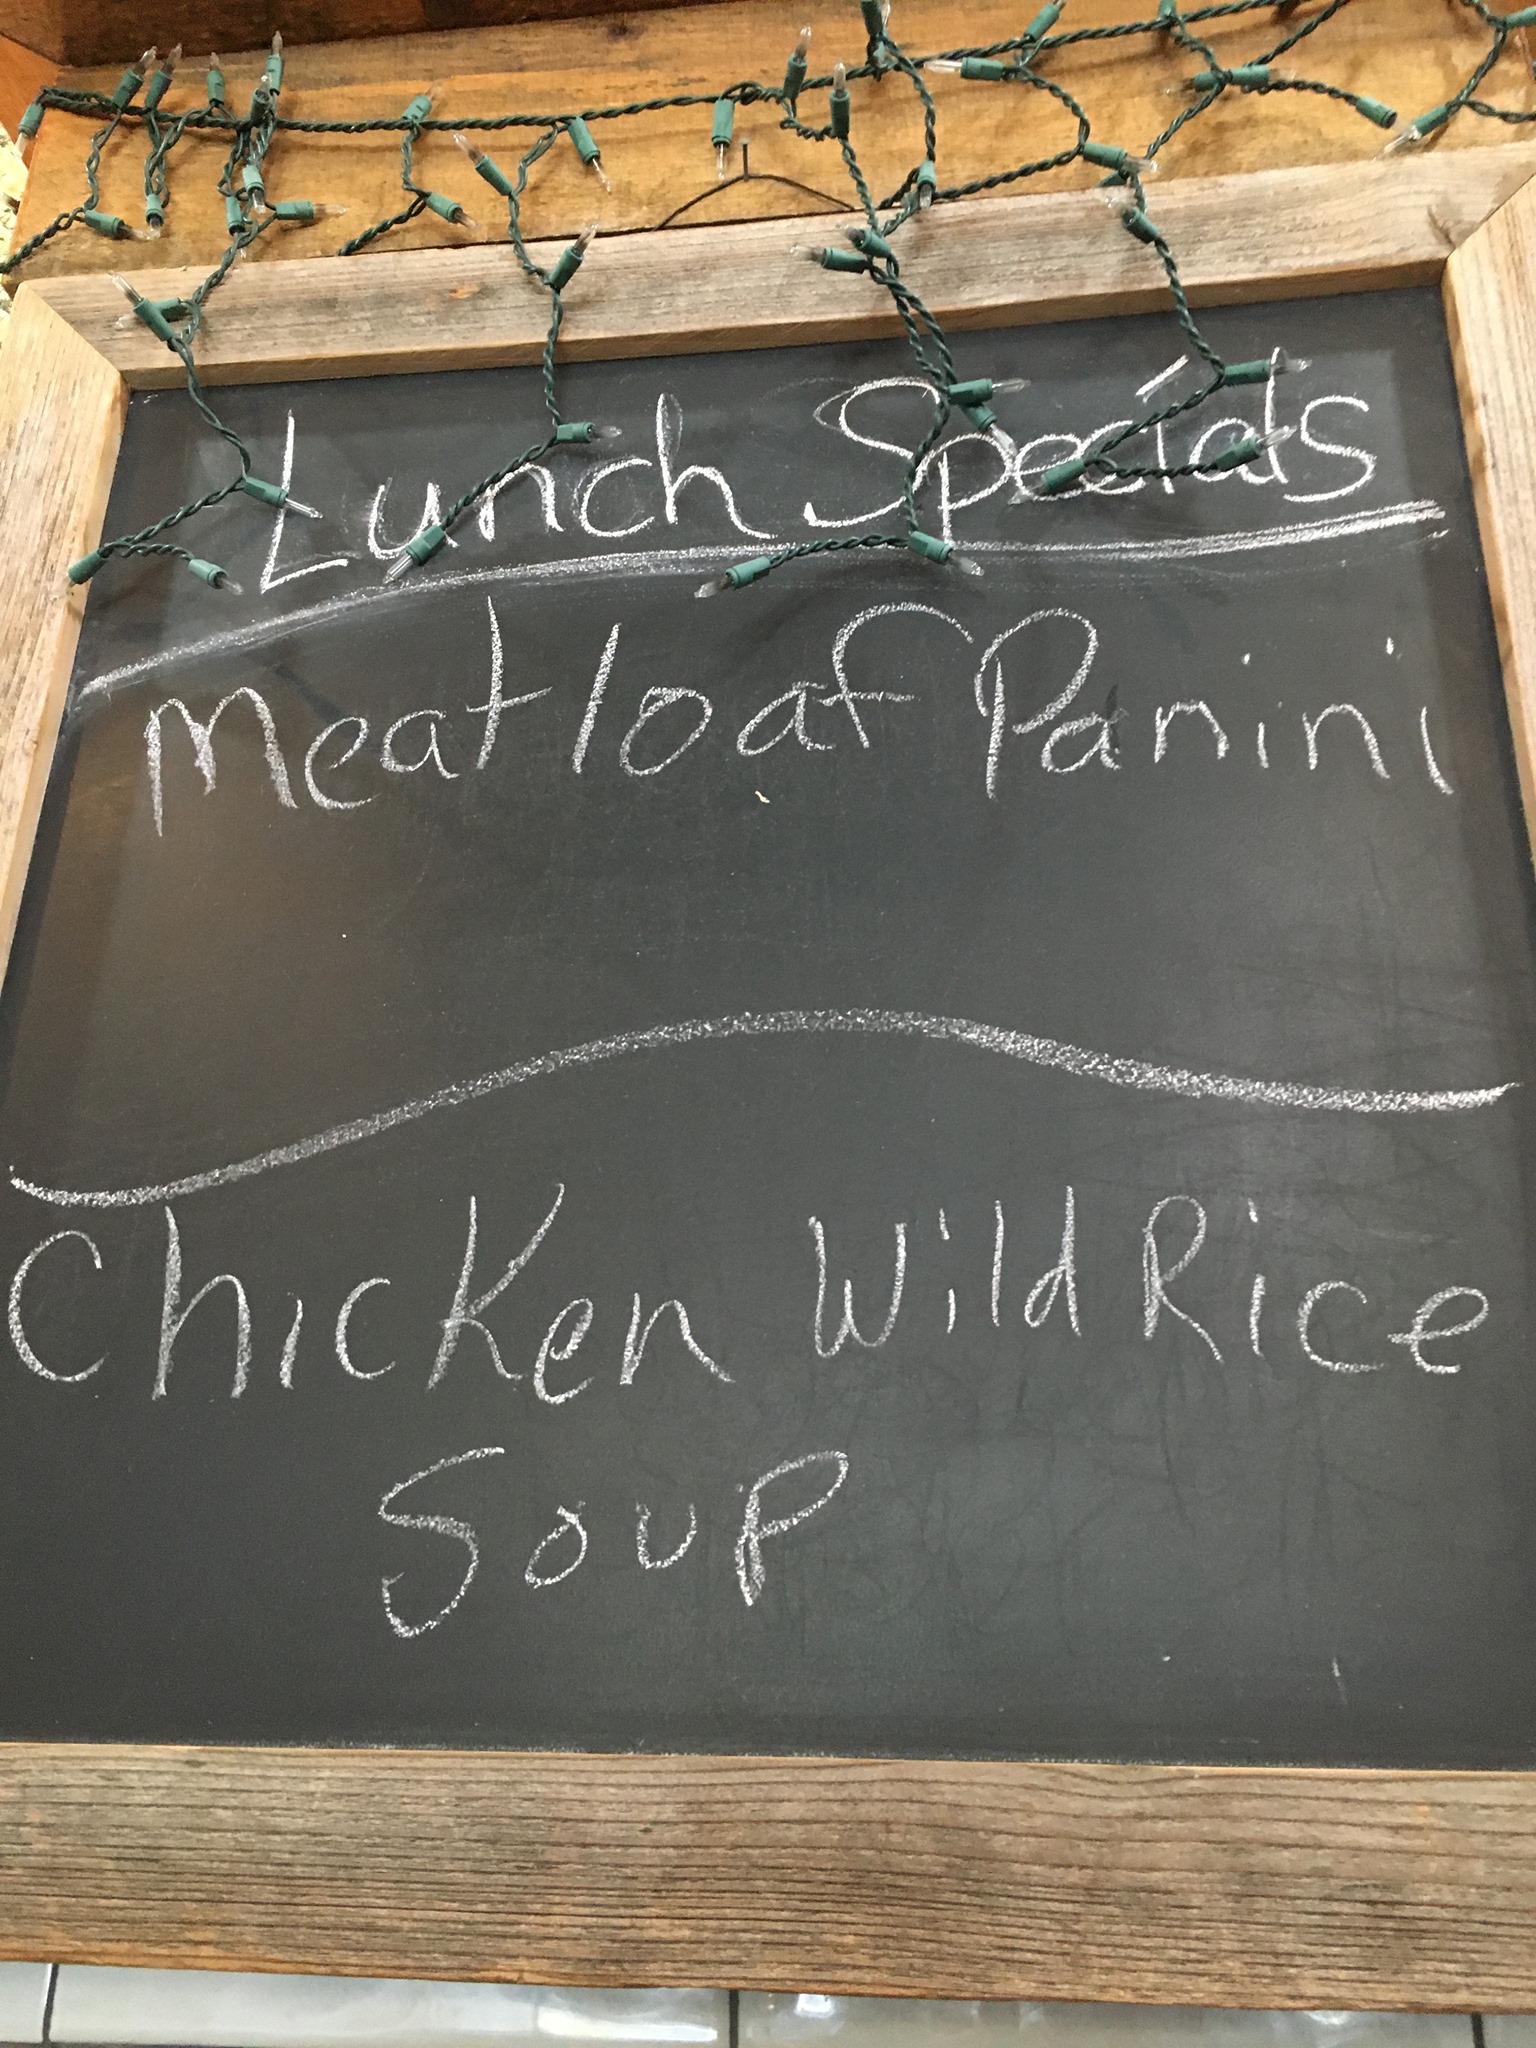 Lunch Specials
Meatloaf Panini
Chicken Wild Rice
Soup